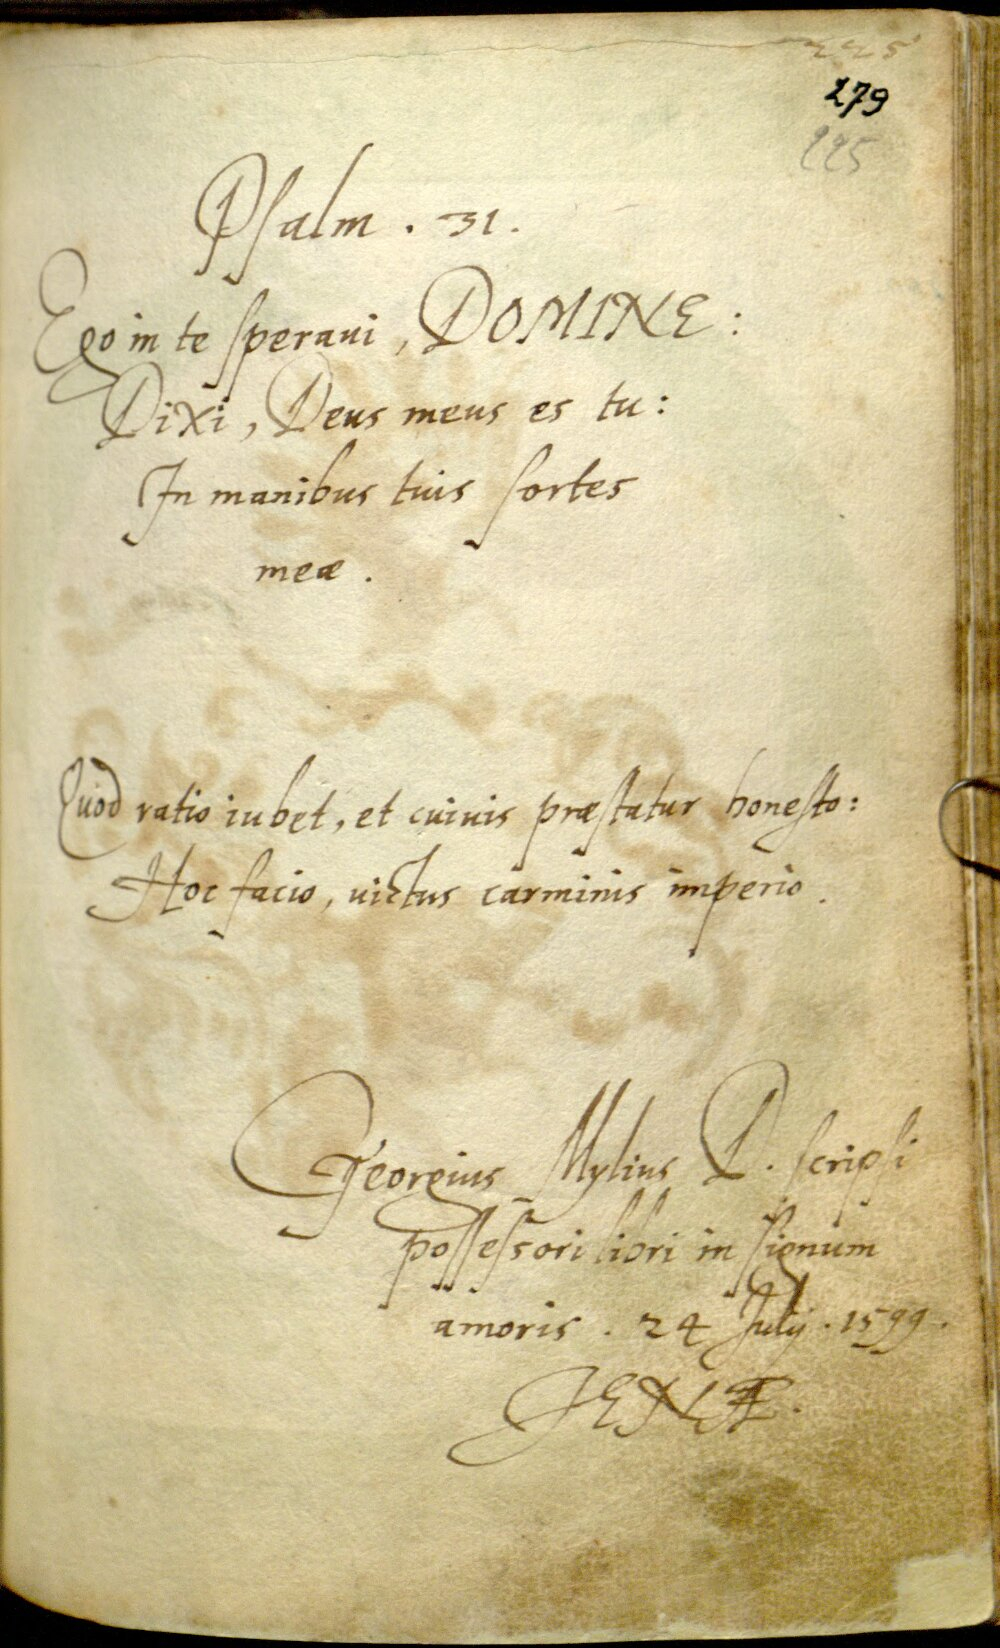 225
279
225
Psalm . 31.
Ego in te speraui, DOMINE :
Dixi, Deus meus es tu :
In manibus tuis sortes
meæ .
Quod ratio iubet, et cuiuis præstatur honesto :
Hoc facio, uictus carminis imperio .
Georgius Mylius D. scripsi
possessori libri in signum
amoris . 24 Julij . 1599 .
JENÆ .